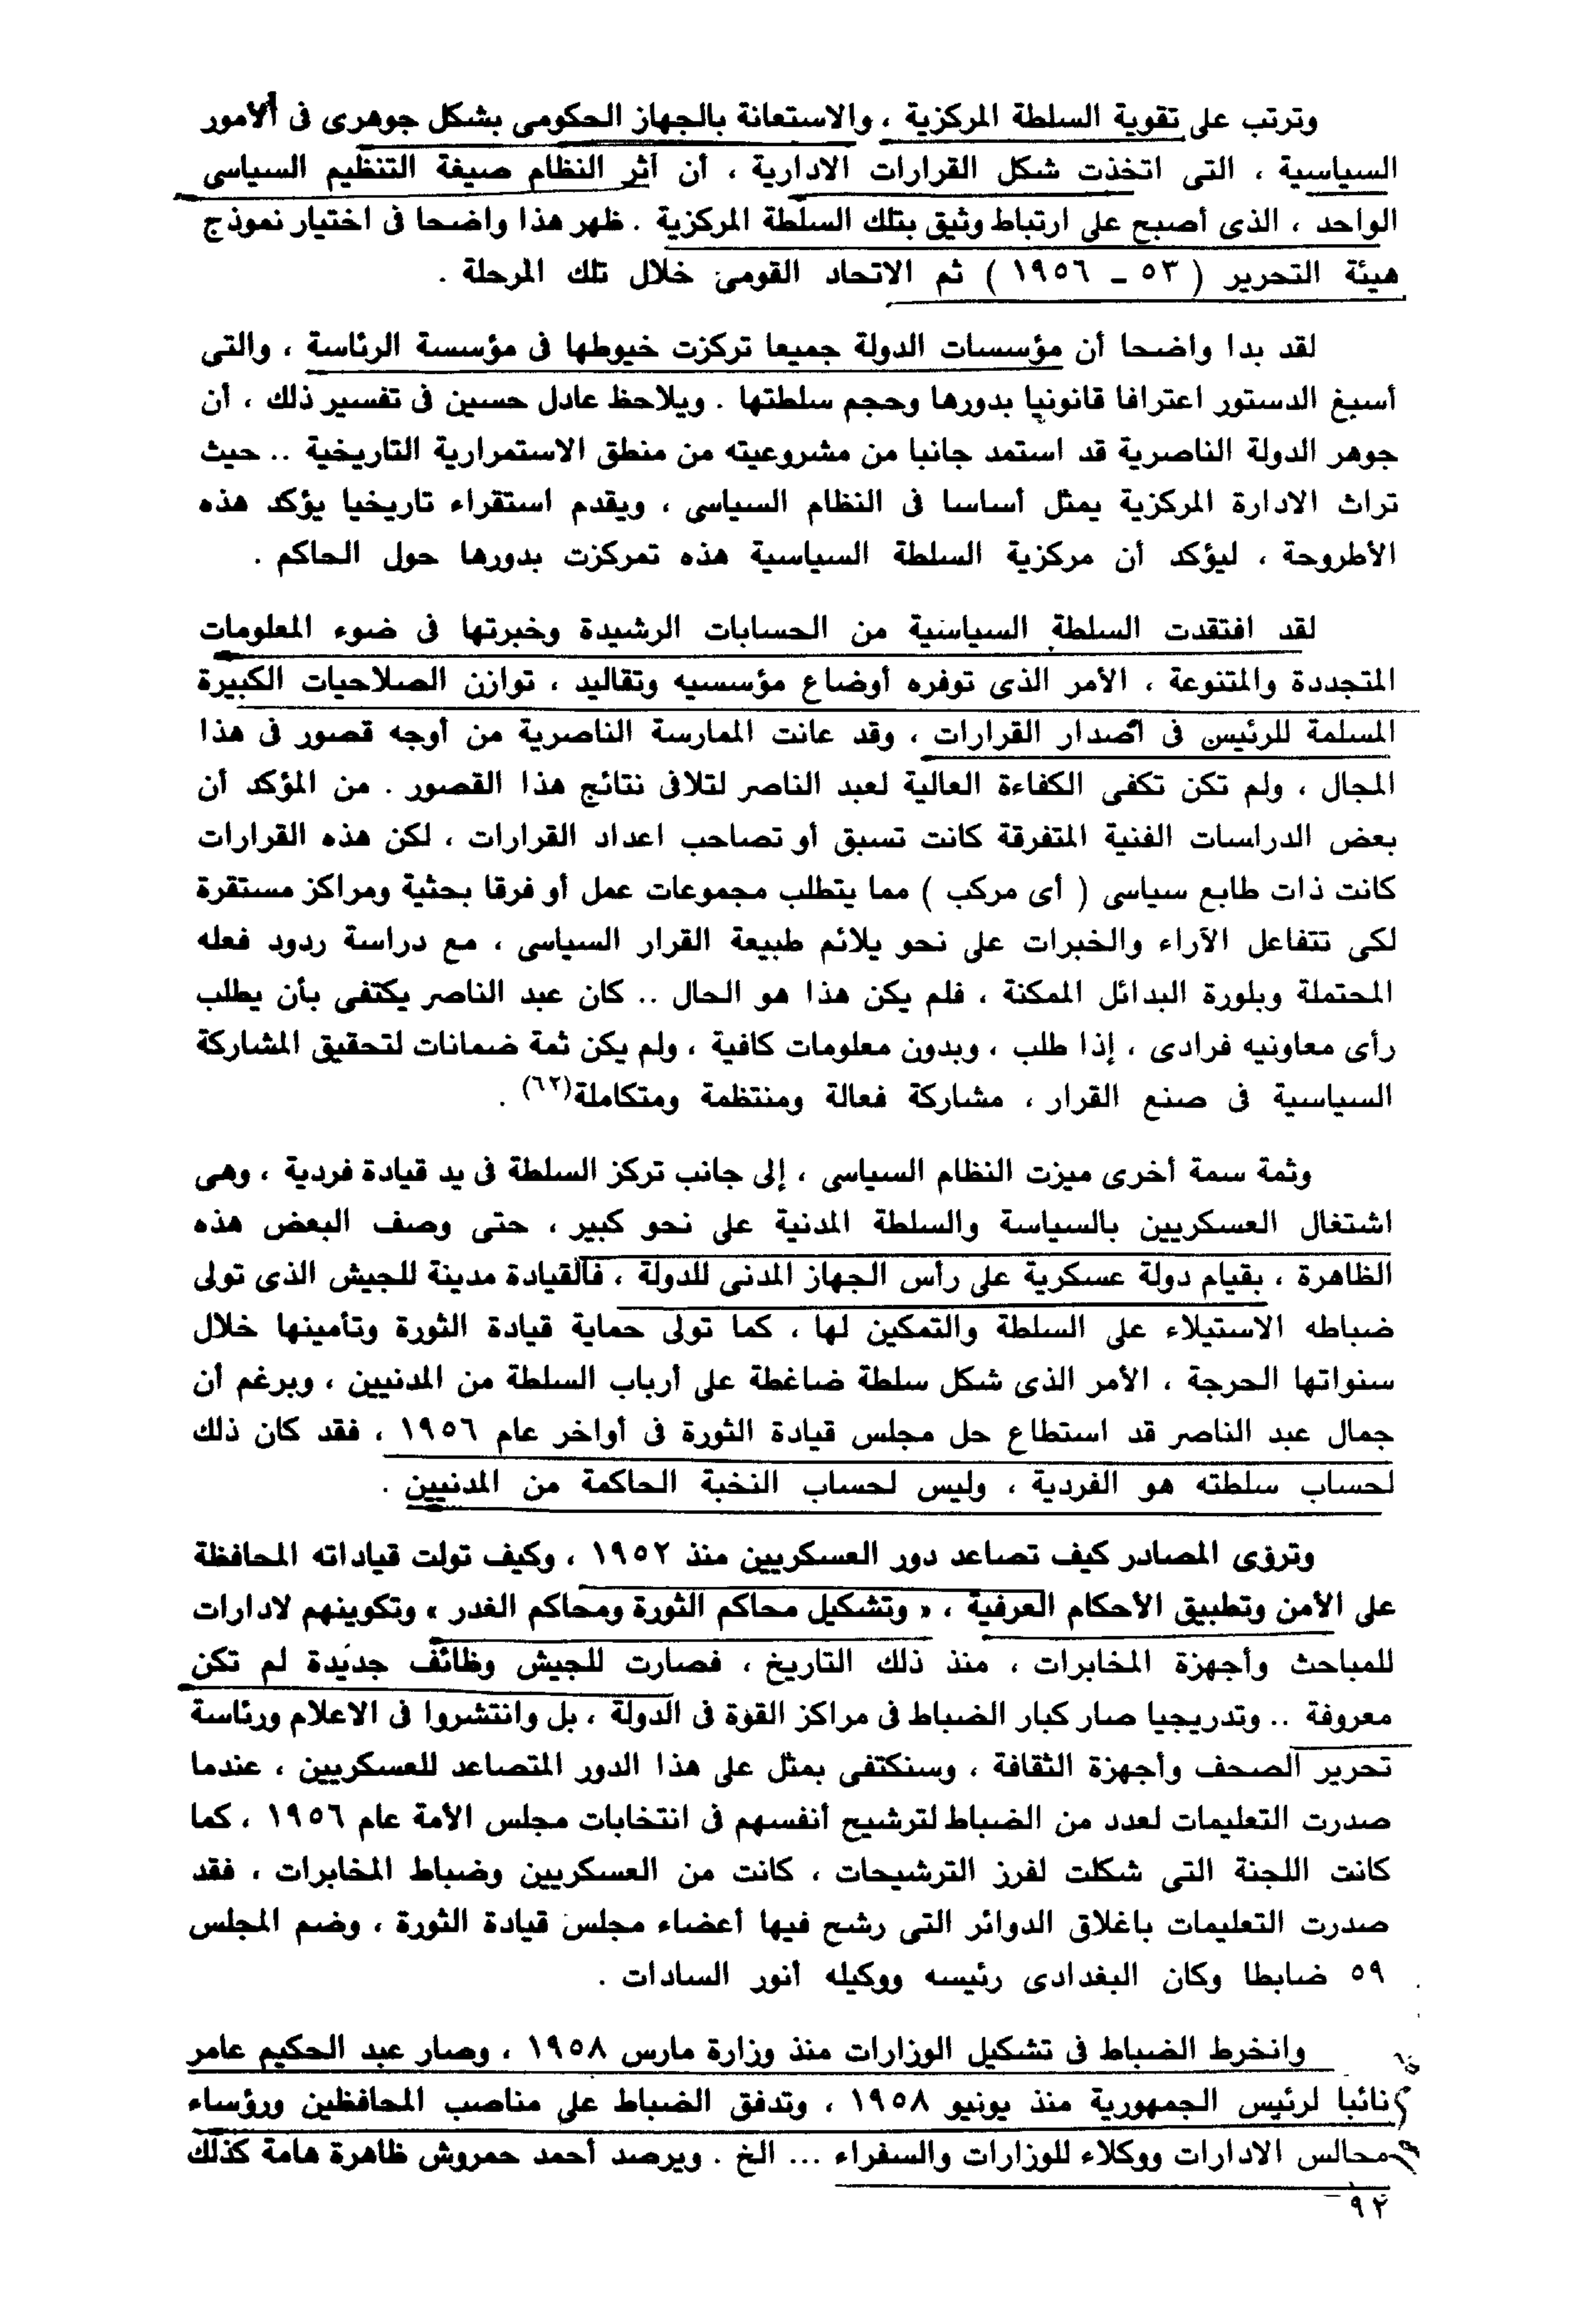 وترتب على تقوية السلطة المركزية ، والاستعانة بالجهاز الحكومى بشكل جوهرى فى ألامور
السياسية ، التى اتخذت شكل القرارات الادارية ، أن آثر النظام صيغة التنظيم السياسى
الواحد ، الذى أصبح على ارتباط وثيق بتلك السلطة المركزية . ظهر هذا واضحا فى اختيار نموذج
هيئة التحرير ( ٥٣ ـ ١٩٥٦ ) ثم الاتحاد القومى خلال تلك المرحلة .
لقد بدا واضحا أن مؤسسات الدولة جميعا تركزت خيوطها فى مؤسسة الرئاسة ، والتى
أسبغ الدستور اعترافا قانونيا بدورها وحجم سلطتها . ويلاحظ عادل حسين فى تفسير ذلك ، أن
جوهر الدولة الناصرية قد استمد جانبا من مشروعيته من منطق الاستمرارية التاريخية .. حيث
تراث الادارة المركزية يمثل أساسا فى النظام السياسى ، ويقدم استقراء تاريخيا يؤكد هذه
الأطروحة ، ليؤكد أن مركزية السلطة السياسية هذه تمركزت بدورها حول الحاكم .
لقد افتقدت السلطة السياسية من الحسابات الرشيدة وخبرتها فى ضوء المعلومات
المتجددة والمتنوعة ، الأمر الذى توفره أوضاع مؤسسيه وتقاليد ، توازن الصلاحيات الكبيرة
المسلمة للرئيس فى اصدار القرارات ، وقد عانت الممارسة الناصرية من أوجه قصور فى هذا
المجال ، ولم تكن تكفى الكفاءة العالية لعبد الناصر لتلافى نتائج هذا القصور . من المؤكد أن
بعض الدراسات الفنية المتفرقة كانت تسبق أو تصاحب اعداد القرارات ، لكن هذه القرارات
كانت ذات طابع سياسى ( أى مركب ) مما يتطلب مجموعات عمل أو فرقا بحثية ومراكز مستقرة
لكى تتفاعل الآراء والخبرات على نحو يلائم طبيعة القرار السياسى ، مع دراسة ردود فعله
المحتملة وبلورة البدائل الممكنة ، فلم يكن هذا هو الحال .. كان عبد الناصر يكتفى بأن يطلب
رأى معاونيه فرادى ، إذا طلب ، وبدون معلومات كافية ، ولم يكن ثمة ضمانات لتحقيق المشاركة
السياسية فى صنع القرار ، مشاركة فعالة ومنتظمة ومتكاملة(٦٢) .
وثمة سمة أخرى ميزت النظام السياسى ، إلى جانب تركز السلطة فى يد قيادة فردية ، وهى
اشتغال العسكريين بالسياسة والسلطة المدنية على نحو كبير ، حتى وصف البعض هذه
الظاهرة ، بقيام دولة عسكرية على رأس الجهاز المدنى للدولة ، فالقيادة مدينة للجيش الذى تولى
ضباطه الاستيلاء على السلطة والتمكين لها ، كما تولى حماية قيادة الثورة وتأمينها خلال
سنواتها الحرجة ، الأمر الذى شكل سلطة ضاغطة على أرباب السلطة من المدنيين ، وبرغم أن
جمال عبد الناصر قد استطاع حل مجلس قيادة الثورة فى أواخر عام ١٩٥٦ ، فقد كان ذلك
لحساب سلطته هو الفردية ، وليس لحساب النخبة الحاكمة من المدنيين .
وتروى المصادر كيف تصاعد دور العسكريين منذ ١٩٥٢ ، وكيف تولت قياداته المحافظة
على الأمن وتطبيق الأحكام العرفية ، « وتشكيل محاكم الثورة ومحاكم الغدر » وتكوينهم لادارات
للمباحث وأجهزة المخابرات ، منذ ذلك التاريخ ، فصارت للجيش وظائف جديدة لم تكن
معروفة .. وتدريجيا صار كبار الضباط فى مراكز القوة فى الدولة ، بل وانتشروا فى الاعلام ورئاسة
تحرير الصحف وأجهزة الثقافة ، وسنكتفى بمثل على هذا الدور المتصاعد للعسكريين ، عندما
صدرت التعليمات لعدد من الضباط لترشيح أنفسهم فى انتخابات مجلس الأمة عام ١٩٥٦ ، كما
كانت اللجنة التى شكلت لفرز الترشيحات ، كانت من العسكريين وضباط المخابرات ، فقد
صدرت التعليمات باغلاق الدوائر التى رشح فيها أعضاء مجلس قيادة الثورة ، وضم المجلس
٥٩ ضابطا وكان البغدادى رئيسه ووكيله أنور السادات .
وانخرط الضباط فى تشكيل الوزارات منذ وزارة مارس ١٩٥٨ ، وصار عبد الحكيم عامر
نائبا لرئيس الجمهورية منذ يونيو ١٩٥٨ ، وتدفق الضباط على مناصب المحافظين ورؤساء
مجالس الادارات ووكلاء للوزارات والسفراء ... الخ . ويرصد أحمد حمروش ظاهرة هامة كذلك
٩٢